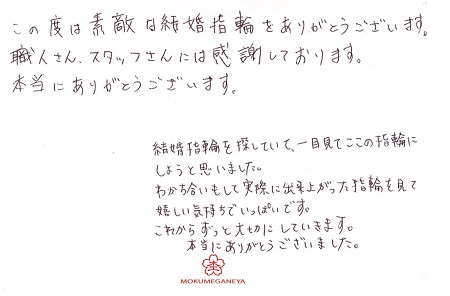 この度は素敵な結婚指輪をありがとうございます。
職人さん、スタッフさんには感謝しております。
本当にありがとうございます。
結婚指輪を探していて、一目見てここの指輪に
しようと思いました。
わかち合いもして実際に出来上がった指輪を見て
嬉しい気持ちでいっぱいです。
これからずっと大切にしていきます。
本当にありがとうございました。
MOKUMEGANEYA